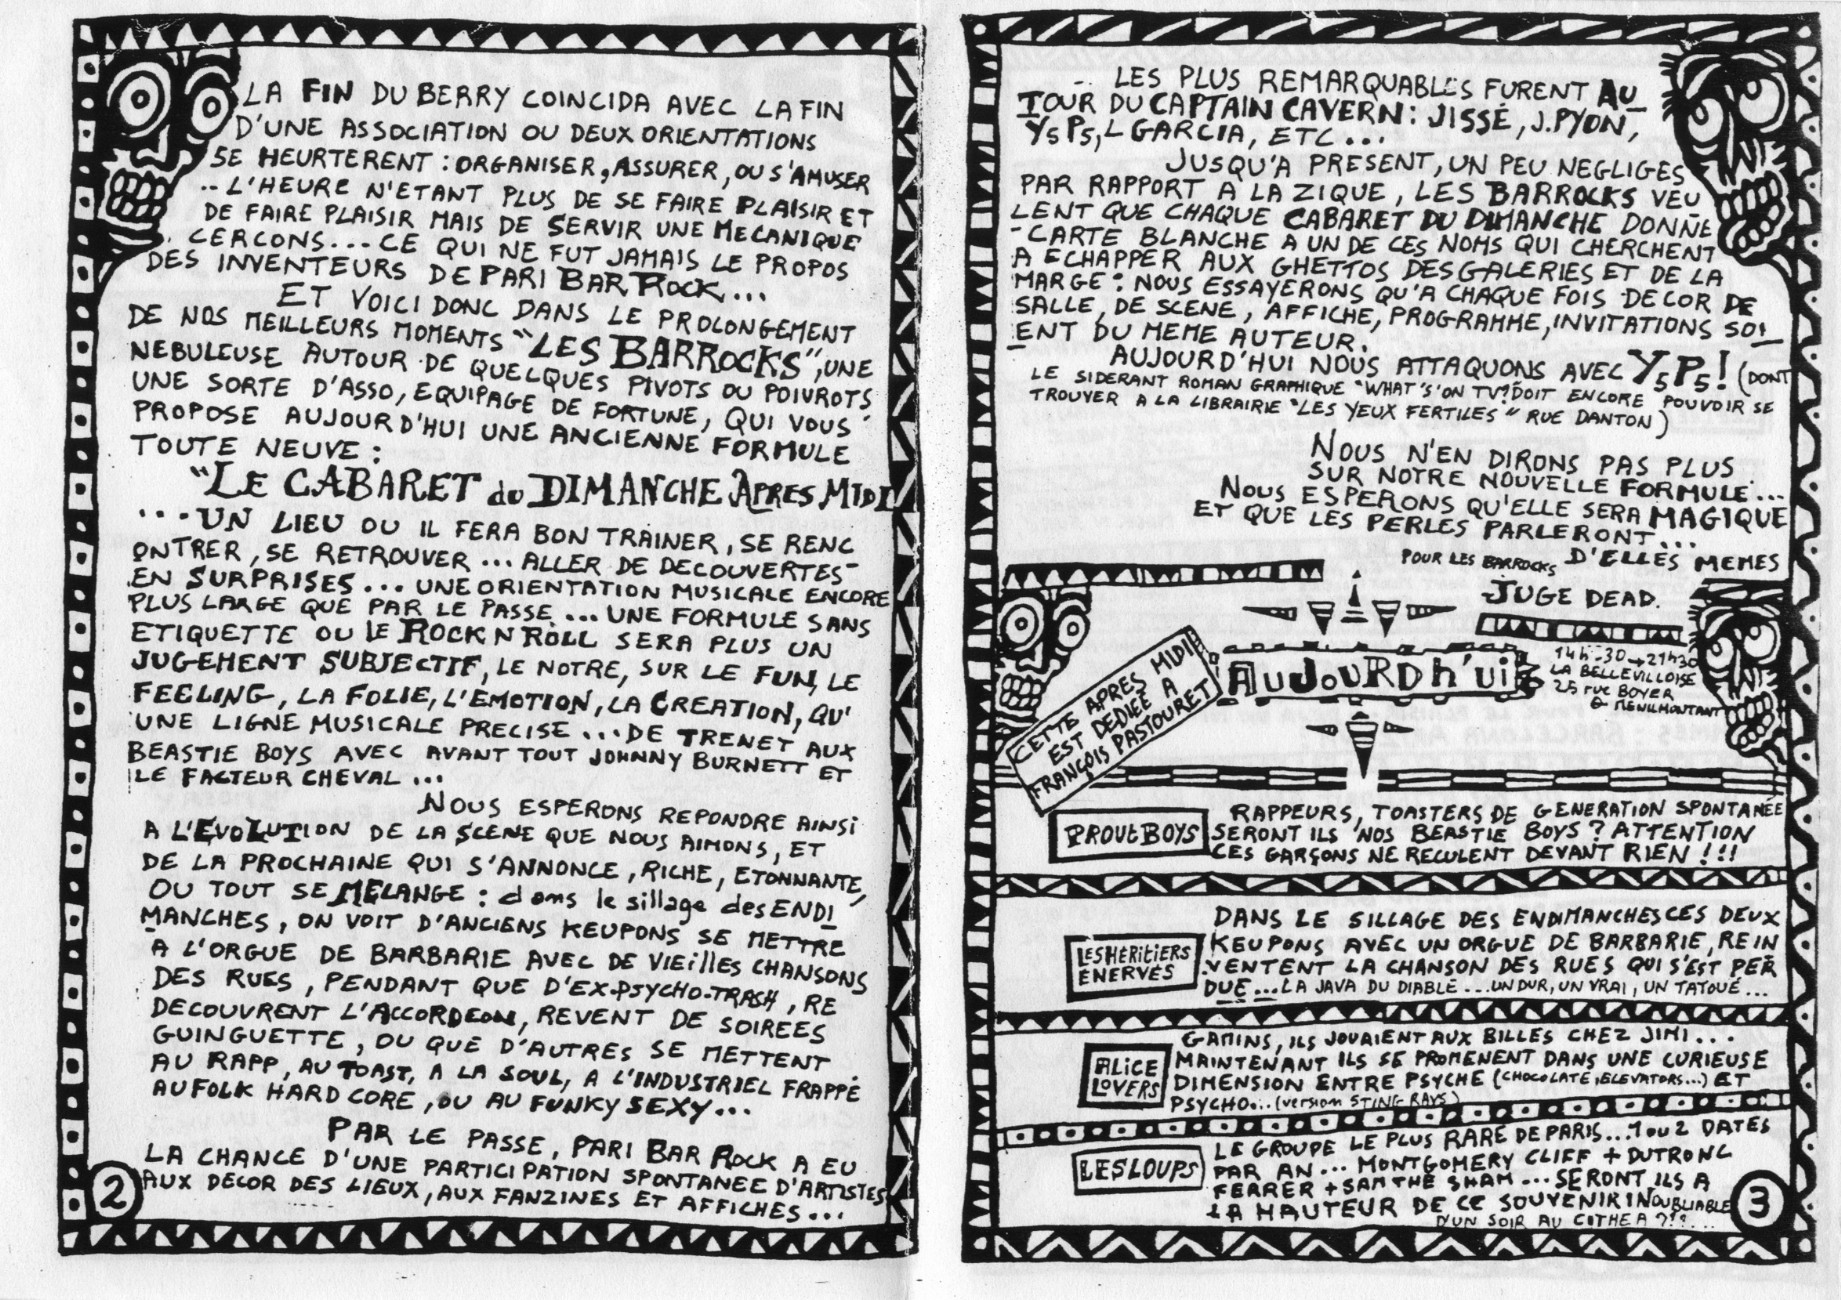 LA FIN DU BERRY COINCIDA AVEC LA FIN
D'UNE ASSOCIATION OU DEUX ORIENTATIONS
SE HEURTERENT : ORGANISER, ASSURER, OU S'AMUSER
.. L'HEURE N'ETANT PLUS DE SE FAIRE PLAISIR ET
DE FAIRE PLAISIR MAIS DE SERVIR UNE MECANIQUE
. CERCONS... CE QUI NE FUT JAMAIS LE PROPOS
DES INVENTEURS DE PARI BAR ROCK...
ET VOICI DONC DANS LE PROLONGEMENT
DE NOS MEILLEURS MOMENTS "LES BARROCKS", UNE
NEBULEUSE AUTOUR DE QUELQUES PIVOTS OU POIVROTS
UNE SORTE D'ASSO, EQUIPAGE DE FORTUNE, QUI VOUS
PROPOSE AUJOURD'HUI UNE ANCIENNE FORMULE
TOUTE NEUVE :
"LE CABARET du DIMANCHE APRES MIDI
... UN LIEU OU IL FERA BON TRAINER, SE RENC
ONTRER, SE RETROUVER ... ALLER DE DECOUVERTES
EN SURPRISES ... UNE ORIENTATION MUSICALE ENCORE
PLUS LARGE QUE PAR LE PASSE ... UNE FORMULE SANS
ETIQUETTE OU LE ROCK N ROLL SERA PLUS UN
JUGEMENT SUBJECTIF, LE NOTRE, SUR LE FUN, LE
FEELING, LA FOLIE, L'EMOTION, LA CREATION, QU'
UNE LIGNE MUSICALE PRECISE ... DE TRENET AUX
BEASTIE BOYS AVEC AVANT TOUT JOHNNY BURNETT ET
LE FACTEUR CHEVAL ...
NOUS ESPERONS REPONDRE AINSI
A L'EVOLUTION DE LA SCENE QUE NOUS AIMONS, ET
DE LA PROCHAINE QUI S'ANNONCE, RICHE, ETONNANTE,
OU TOUT SE MELANGE : dans le sillage des ENDI
MANCHES, ON VOIT D'ANCIENS KEUPONS SE METTRE
A L'ORGUE DE BARBARIE AVEC DE VIEILLES CHANSONS
DES RUES, PENDANT QUE D'EX-PSYCHO-TRASH, RE
DECOUVRENT L'ACCORDEON, REVENT DE SOIREES
GUINGUETTE, OU QUE D'AUTRES SE METTENT
AU RAPP, AU TOAST, A LA SOUL, A L'INDUSTRIEL FRAPPÉ
AU FOLK HARD CORE, OU AU FUNKY SEXY...
PAR LE PASSE, PARI BAR ROCK A EU
LA CHANCE D'UNE PARTICIPATION SPONTANEE D'ARTISTES
AUX DECOR DES LIEUX, AUX FANZINES ET AFFICHES...
2
LES PLUS REMARQUABLES FURENT AU
TOUR DU CAPTAIN CAVERN : JISSÉ, J.PYON,
Y5 P5, L GARCIA, ETC ...
JUSQU'A PRESENT, UN PEU NEGLIGES
PAR RAPPORT A LA ZIQUE, LES BARROCKS VEU
LENT QUE CHAQUE CABARET DU DIMANCHE DONNE
CARTE BLANCHE A UN DE CES NOMS QUI CHERCHENT
A ECHAPPER AUX GHETTOS DES GALERIES ET DE LA
MARGE : NOUS ESSAYERONS QU'A CHAQUE FOIS DECOR DE
SALLE, DE SCENE, AFFICHE, PROGRAMME, INVITATIONS SOI
ENT DU MEME AUTEUR.
AUJOURD'HUI NOUS ATTAQUONS AVEC Y5P5! (DONT
LE SIDERANT ROMAN GRAPHIQUE "WHAT'S'ON TV?" DOIT ENCORE POUVOIR SE
TROUVER A LA LIBRAIRIE "LES YEUX FERTILES" RUE DANTON)
NOUS N'EN DIRONS PAS PLUS
SUR NOTRE NOUVELLE FORMULE ...
NOUS ESPERONS QU'ELLE SERA MAGIQUE
ET QUE LES PERLES PARLERONT...
D'ELLES MEMES
POUR LES BARROCKS
JUGE DEAD.
CETTE APRES MIDI
EST DEDIÉE A
FRANÇOIS PASTOURET
AUJOURD h'ui
14h30→21h30
LA BELLEVILLOISE
25 rue BOYER
Ⓜ MENILMONTANT
PROUT BOYS
RAPPEURS, TOASTERS DE GENERATION SPONTANÉE
SERONT ILS NOS BEASTIE BOYS ? ATTENTION
CES GARÇONS NE RECULENT DEVANT RIEN !!!
LES HERITIERS
ENERVÉS
DANS LE SILLAGE DES ENDIMANCHES CES DEUX
KEUPONS AVEC UN ORGUE DE BARBARIE, REIN
VENTENT LA CHANSON DES RUES QUI S'EST PER
DUE... LA JAVA DU DIABLE ... UN DUR, UN VRAI, UN TATOUÉ ...
ALICE
LOVERS
GAMINS, ILS JOUAIENT AUX BILLES CHEZ JIMI ...
MAINTENANT ILS SE PROMENENT DANS UNE CURIEUSE
DIMENSION ENTRE PSYCHE (CHOCOLATE, ELEVATORS...) ET
PSYCHO... (version STING RAYS)
LES LOUPS
LE GROUPE LE PLUS RARE DE PARIS... 1 ou 2 DATES
PAR AN ... MONTGOMERY CLIFF + DUTRONC
FERRER + SAM THE SHAM ... SERONT ILS A
LA HAUTEUR DE CE SOUVENIR INOUBLIABLE
D'UN SOIR AU CITHEA ?!? ....
3